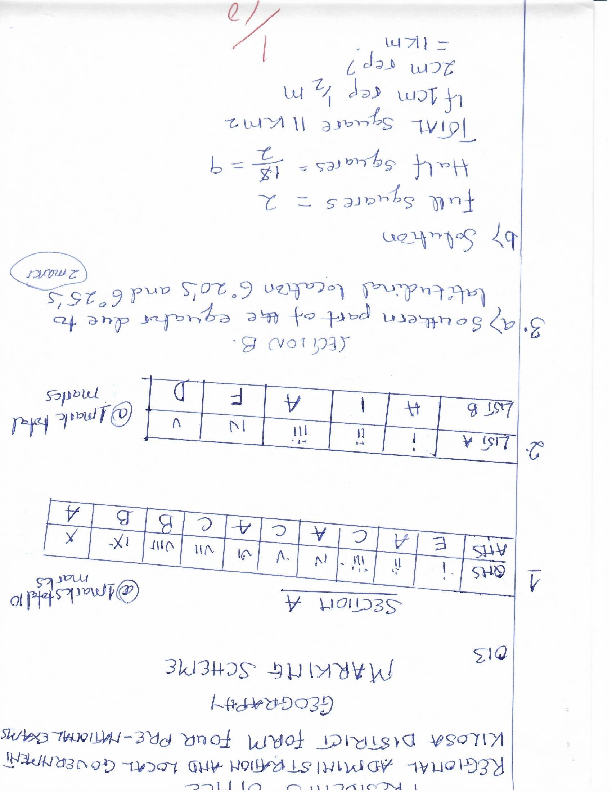 PRESIDENT'S OFFICE
REGIONAL ADMINISTRATION AND LOCAL GOVERNMENT
KILOSA DISTRICT FORM FOUR PRE-NATIONAL EXAMS
GEOGRAPHY
MARKING SCHEME
013
SECTION A
@1 marks total 10 marks
1
QNS i ii iii iv v vi vii viii ix x
ANS E A C A C A C B B A
2. LIST A i ii iii iv v
LIST B H I A F D
@1 mark total marks
SECTION B.
3. a) Southern part of the equator due to
latitudinal location 6°20's and 6°25's
2 marks
b) Solution
Full squares = 2
Half squares = 18/2 = 9
TOTAL square 11 km2
If 1cm rep 1/2 m
2cm rep ?
= 1km